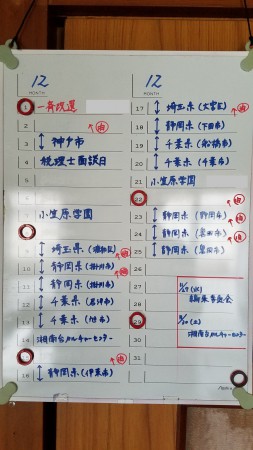 12
MONTH
1 一斉改選
2 (泊)
3 神戸市
4 税理士面談日
5
7 小笠原学園
9 埼玉県(浦和区) (泊)
10 静岡県(掛川市) (泊)
11 静岡県(掛川市)
12 千葉県(君津市)
13 千葉県(旭市)
14 湘南台カルチャーセンター
(泊)
16 静岡県(伊東市)
12
MONTH
17 埼玉県(大宮区) (泊)
18 静岡県(下田市)
19 千葉県(船橋市)
20 千葉県(千葉市)
21 小笠原学園
22 (泊)
23 静岡県(静岡市) (泊)
24 静岡県(磐田市) (泊)
25 静岡県(磐田市)
26
27
28
湘南台カルチャーセンター
30
31